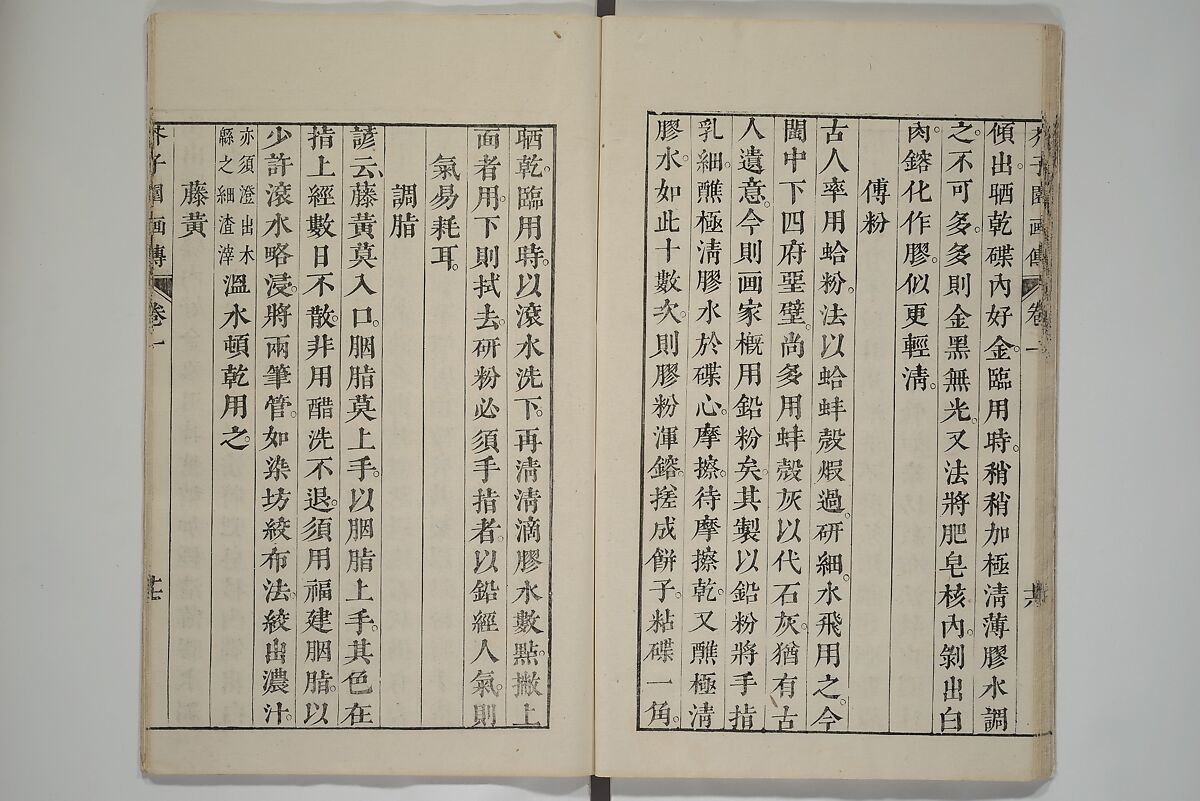 芥子園画傳 卷一
傾出晒乾碟內好金臨用時稍稍加極淸薄膠水調
之不可多多則金黑無光又法將肥皂核內剝出白
肉鎔化作膠似更輕淸
傅粉
古人率用蛤粉法以蛤蚌殼煅過硏細水飛用之今
閩中下四府堊壁尙多用蚌殼灰以代石灰猶有古
人遺意今則画家槪用鉛粉矣其製以鉛粉將手指
乳細蘸極淸膠水於碟心摩擦待摩擦乾又蘸極淸
膠水如此十數次則膠粉渾鎔搓成餠子粘碟一角
晒乾臨用時以滾水洗下再淸淸滴膠水數點撇上
面者用下則拭去硏粉必須手指者以鉛經人氣則
氣易耗耳
調脂
諺云藤黃莫入口胭脂莫上手以胭脂上手其色在
指上經數日不散非用醋洗不退須用福建胭脂以
少許滾水略浸將兩筆管如染坊絞布法絞出濃汁
亦須澄出木
緜之細渣滓
溫水頓乾用之
藤黃
芥子園画傳 卷一